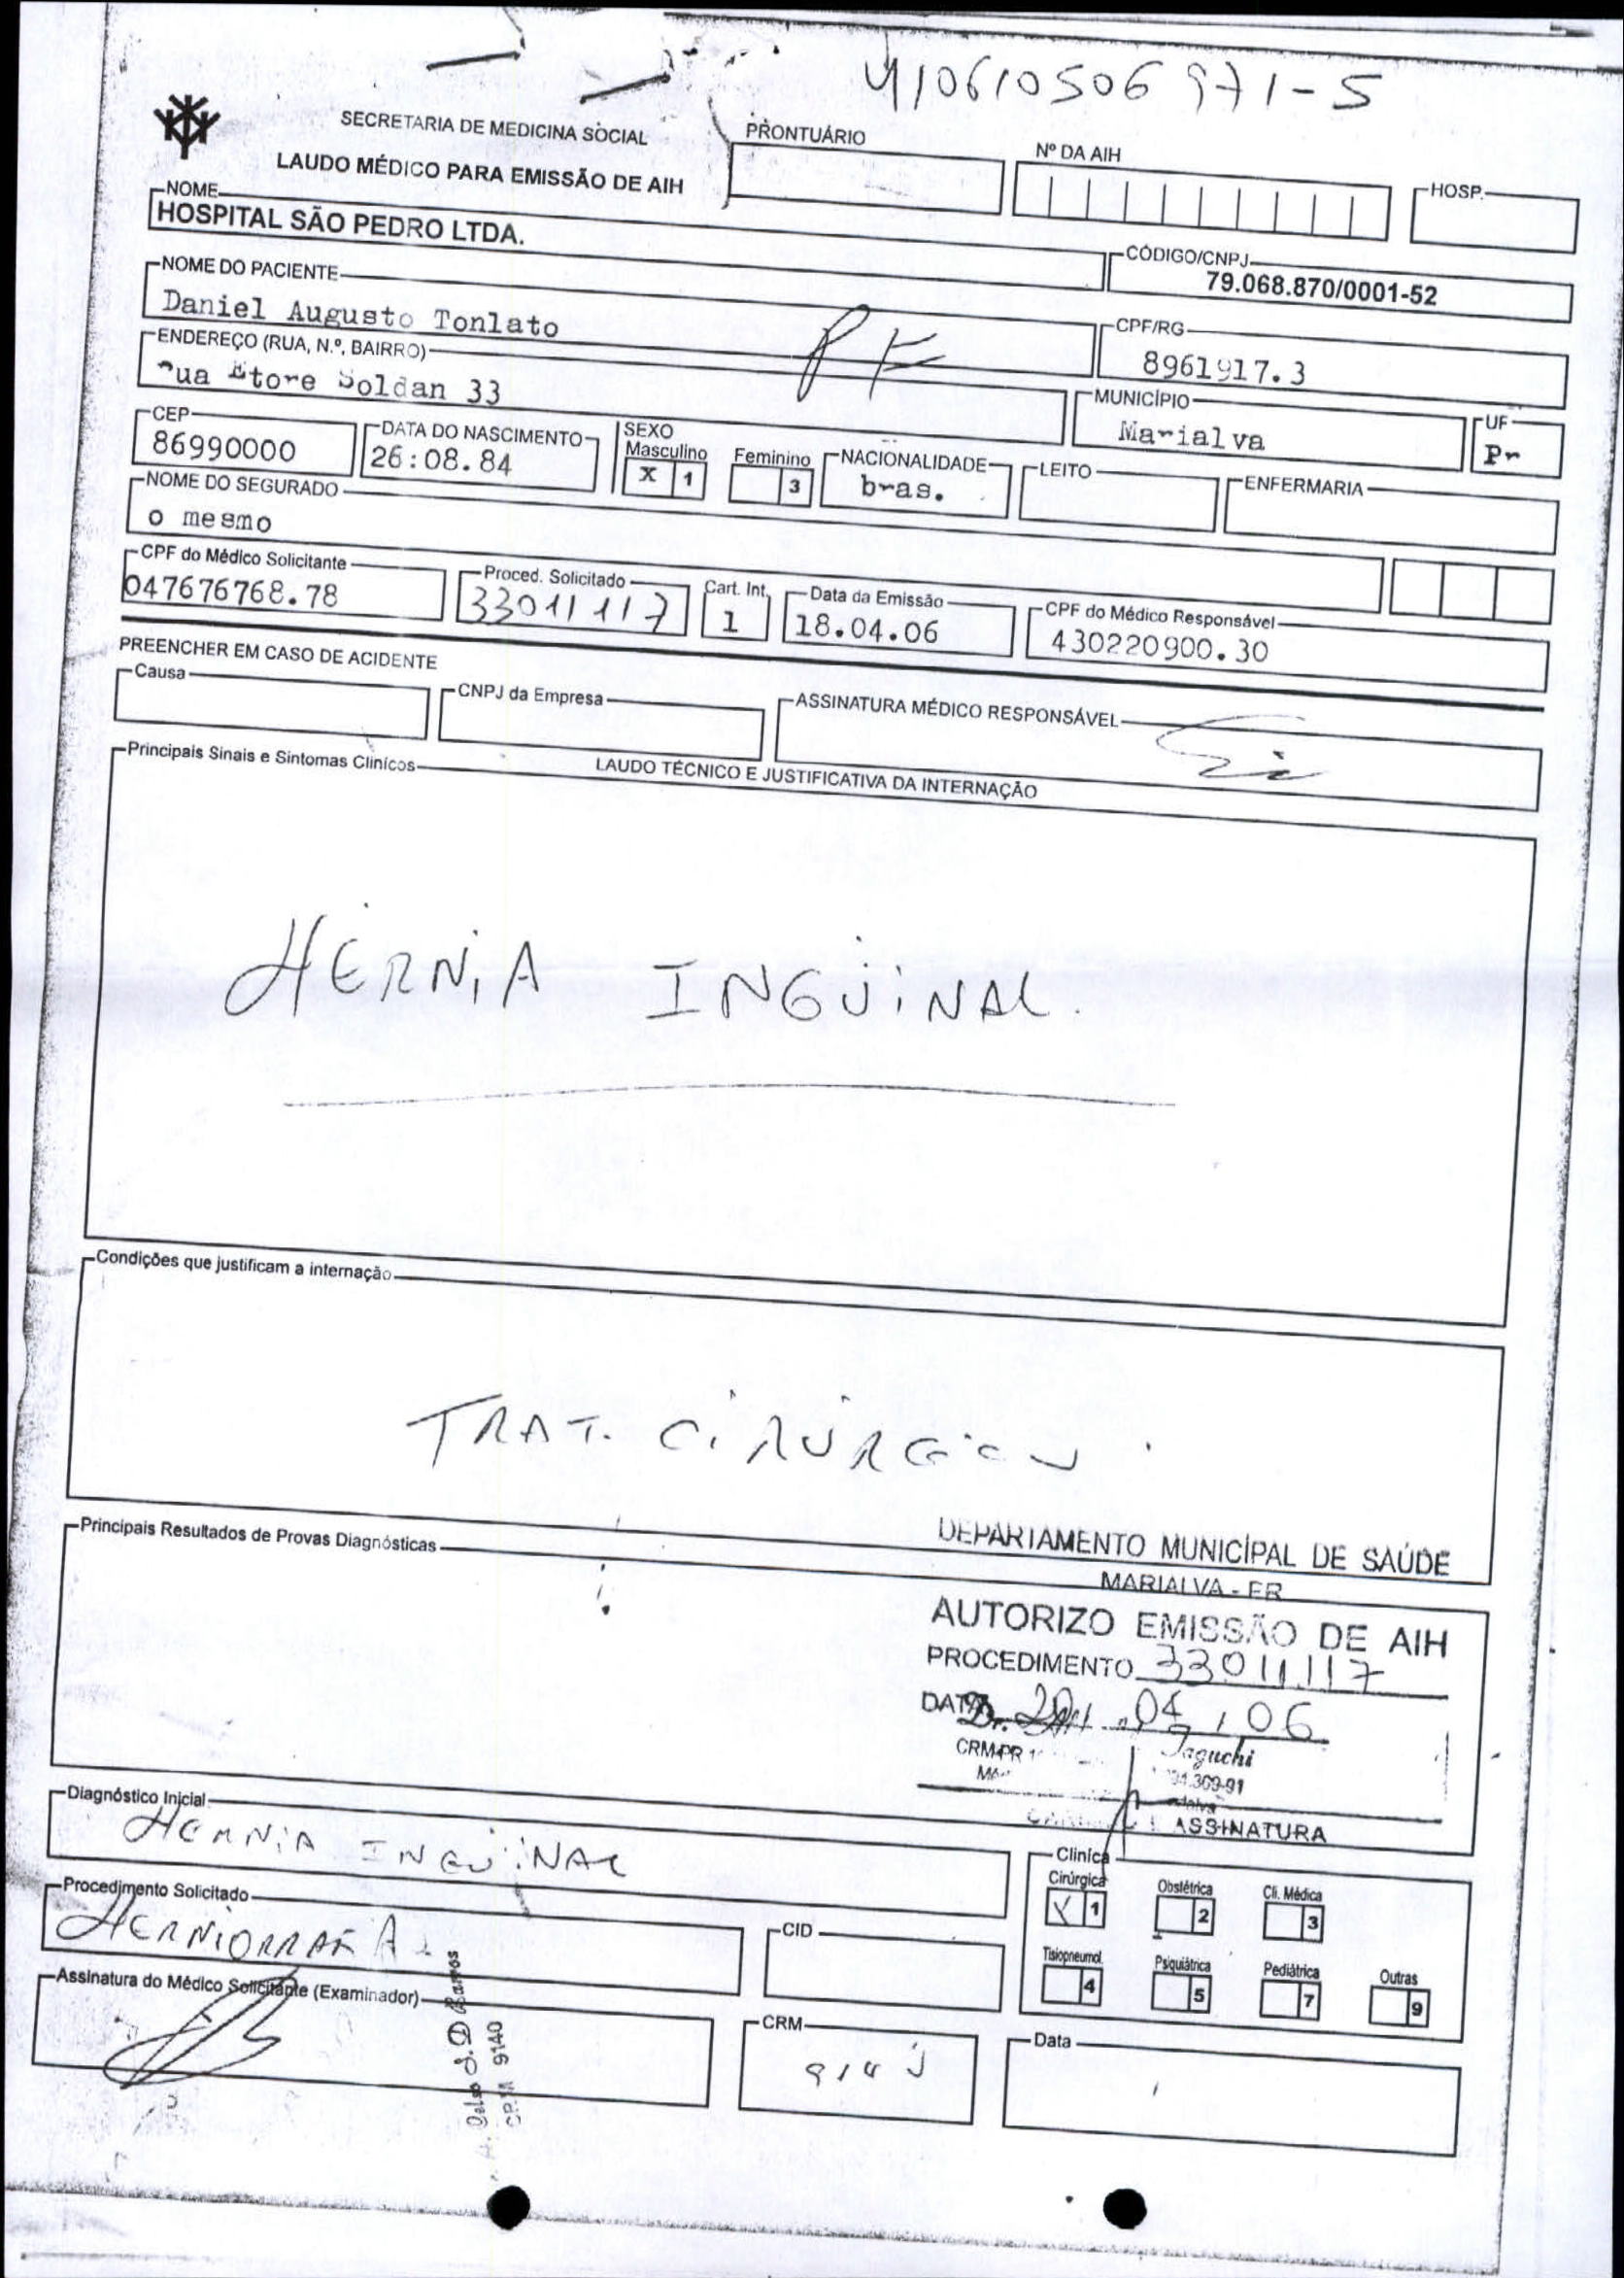 410610506971-5
SECRETARIA DE MEDICINA SOCIAL
LAUDO MÉDICO PARA EMISSÃO DE AIH
PRONTUÁRIO
Nº DA AIH
HOSP.
NOME
HOSPITAL SÃO PEDRO LTDA.
CÓDIGO/CNPJ
79.068.870/0001-52
NOME DO PACIENTE
Daniel Augusto Tonlato
CPF/RG
8961917.3
ENDEREÇO (RUA, N.º, BAIRRO)
Rua Etore Soldan 33
MUNICÍPIO
Marialva
UF
Pr
CEP
86990000
DATA DO NASCIMENTO
26:08.84
SEXO
Masculino
X 1
Feminino
3
NACIONALIDADE
bras.
LEITO
ENFERMARIA
NOME DO SEGURADO
o mesmo
CPF do Médico Solicitante
047676768.78
Proced. Solicitado
33011117
Cart. Int.
1
Data da Emissão
18.04.06
CPF do Médico Responsável
430220900.30
PREENCHER EM CASO DE ACIDENTE
Causa
CNPJ da Empresa
ASSINATURA MÉDICO RESPONSÁVEL
LAUDO TÉCNICO E JUSTIFICATIVA DA INTERNAÇÃO
Principais Sinais e Sintomas Clínicos
HÉRNIA INGÜINAL.
Condições que justificam a internação
TRAT. CIRÚRGICO
Principais Resultados de Provas Diagnósticas
DEPARTAMENTO MUNICÍPAL DE SAÚDE
MARIALVA - PR
AUTORIZO EMISSÃO DE AIH
PROCEDIMENTO 33011117
DATA 20 , 04 , 06
Dr. Taguchi
CRM-PR
ASSINATURA
Diagnóstico Inicial
HERNIA INGUINAL
Procedimento Solicitado
HERNIORRAFIA
CID
Clínica
Cirúrgica
X 1
Obstétrica
2
Cli. Médica
3
Tisiopneumol.
4
Psiquiátrica
5
Pediátrica
7
Outras
9
Assinatura do Médico Solicitante (Examinador)
Celso S. D Barros
CRM 9140
CRM
9140
Data